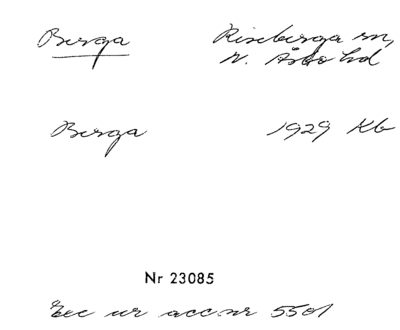 Berga Riseberga sn,
N. Åsbo hd
Berga 1929 Kb
Nr 23085
Exc ur acc.nr 5501